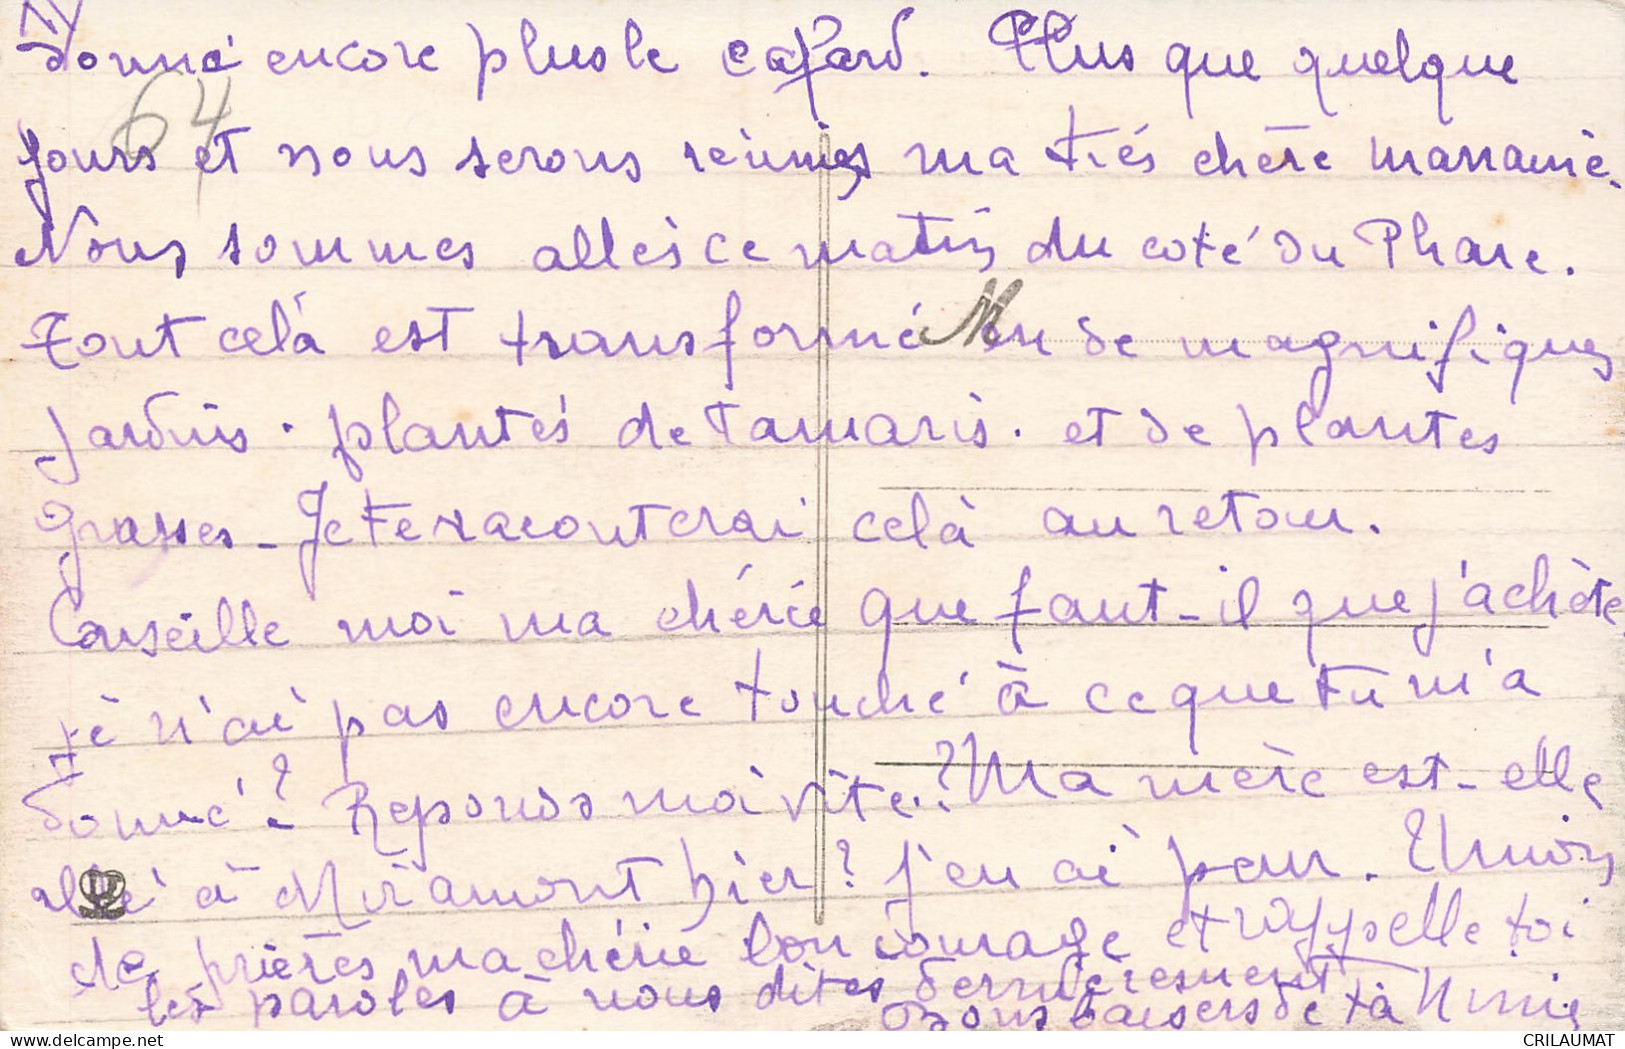 donné encore plus le cafard. Plus que quelque
jours et nous serons réunies ma très chère mamamie.
Nous sommes allés ce matin du coté du Phare.
Tout celà est transformé en de magnifiques
jardins. plantés de Tamaris. et de plantes
grasses - Je te raconterai celà au retour.
Conseille moi ma chérie que faut-il que j'achète
je n'ai pas encore touché à ce que tu m'a
donné? Reponds moi vite..? Ma mère est-elle
allé à Miramont hier? j'en ai peur. Union
de prières ma chérie bon courage et rappelle toi
les paroles à nous dites dernièrement
Bons baisers de ta Ninie
64
M
CRILAUMAT